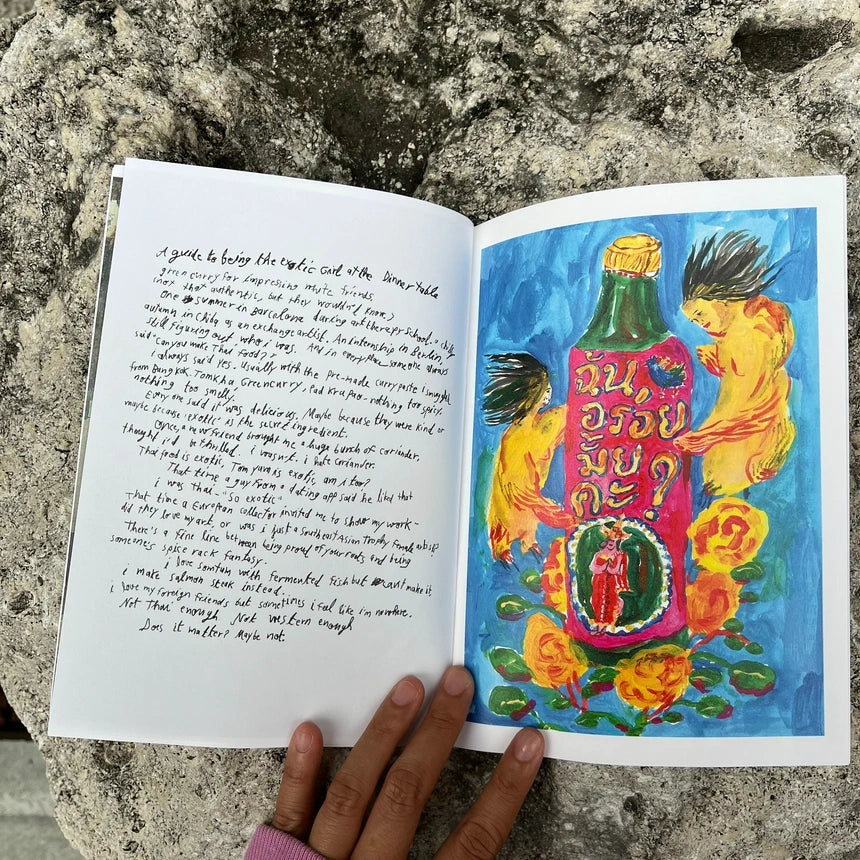 A guide to being the exotic Girl at the Dinner table
green curry for impressing white friends.
(not that authentic, but they wouldn't know)
One summer in Barcelona during art therapy school. a chilly
autumn in China as an exchange artist. An internship in Berlin,
still figuring out who i was. And in every place someone always
said "Can you make Thai food?"
i always said yes. Usually with the pre-made curry paste i smuggled
from Bangkok. Tomkha Greencurry, Pad Kraprao - nothing too spicy.
nothing too smelly.
Every one said it was delicious. Maybe because they were kind or
maybe because 'exotic' is the secret ingredient.
Once, a new friend brought me a huge bunch of coriander.
thought i'd be thrilled. i wasn't. i hate coriander.
Thai food is exotic, Tom yum is exotic, am i too?
That time a guy from a dating app said he liked that
i was Thai - "So exotic"
That time a European collector invited me to show my work -
did they love my art or was i just a Southeast Asian trophy female artist?
There's a fine line between being proud of your roots and being
someone's spice rack fantasy.
i love somtum with fermented fish but can't make it,
i make salmon steak instead..
i love my foreign friends but sometimes i feel like i'm nowhere.
Not Thai enough Not western enough
Does it matter? Maybe not.
ฉัน
อร่อย
มั้ย
คะ?